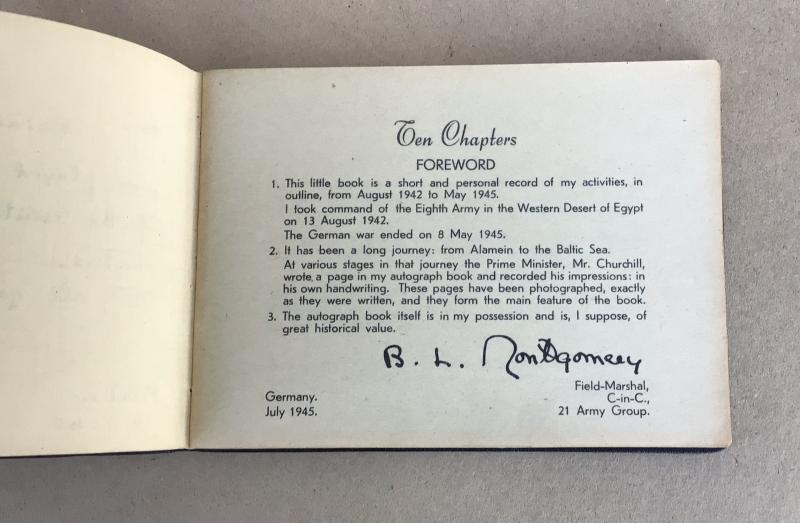 Ten Chapters
FOREWORD
1. This little book is a short and personal record of my activities, in
outline, from August 1942 to May 1945.
I took command of the Eighth Army in the Western Desert of Egypt
on 13 August 1942.
The German war ended on 8 May 1945.
2. It has been a long journey: from Alamein to the Baltic Sea.
At various stages in that journey the Prime Minister, Mr. Churchill,
wrote a page in my autograph book and recorded his impressions: in
his own handwriting. These pages have been photographed, exactly
as they were written, and they form the main feature of the book.
3. The autograph book itself is in my possession and is, I suppose, of
great historical value.
B. L. Montgomery
Field-Marshal,
C-in-C.,
21 Army Group.
Germany.
July 1945.